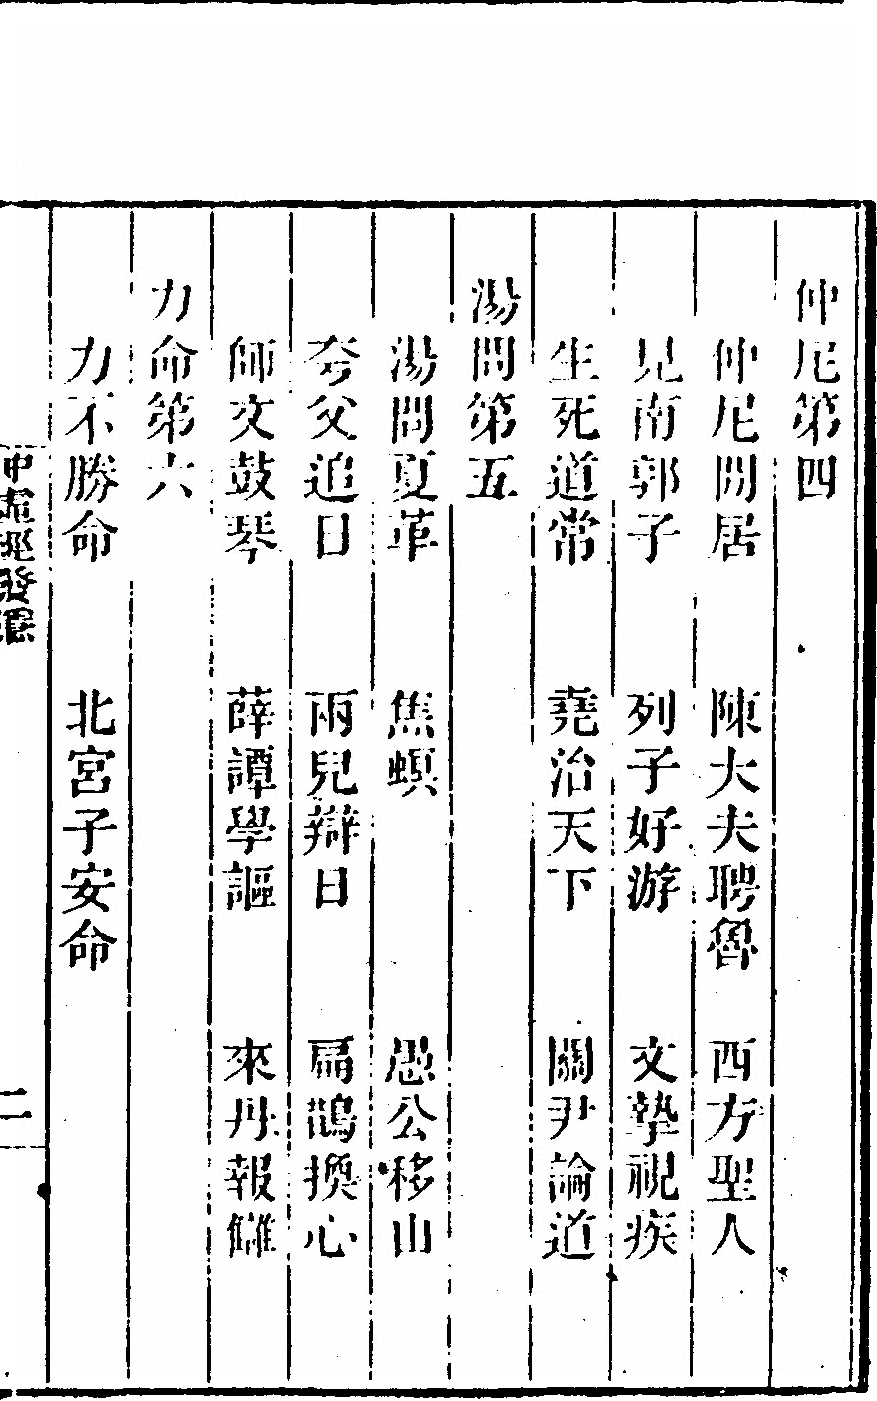 仲尼第四
仲尼閒居　陳大夫聘魯　西方聖人
見南郭子　列子好游　文摯視疾
生死道常　堯治天下　關尹論道
湯問第五
湯問夏革　焦螟　愚公移山
夸父追日　兩兒辯日　扁鵲換心
師文鼓琴　薛譚學謳　來丹報讎
力命第六
力不勝命　北宮子安命
二